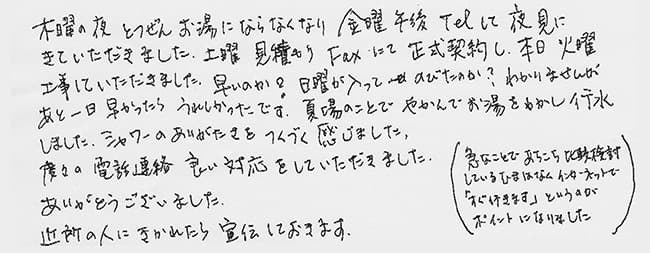 木曜の夜 とつぜん お湯にならなくなり 金曜 午後 Telして 夜見に
きていただきました. 土曜 見積もり Faxにて 正式契約し、本日 火曜
工事していただきました. 早いのか? 日曜が入って のびたのか? わかりませんが
あと一日 早かったら うれしかったです. 夏場のことで やかんでお湯をわかし 行水
しました. シャワーの ありがたさを つくづく 感じました.
度々の 電話連絡 良い 対応 をしていただきました.
ありがとうございました.
近所の人に きかれたら 宣伝しておきます.
急なことで あちこち 比較検討
しているひまはなく インターネットで
「すぐ行きます」 というのが
ポイント になりました